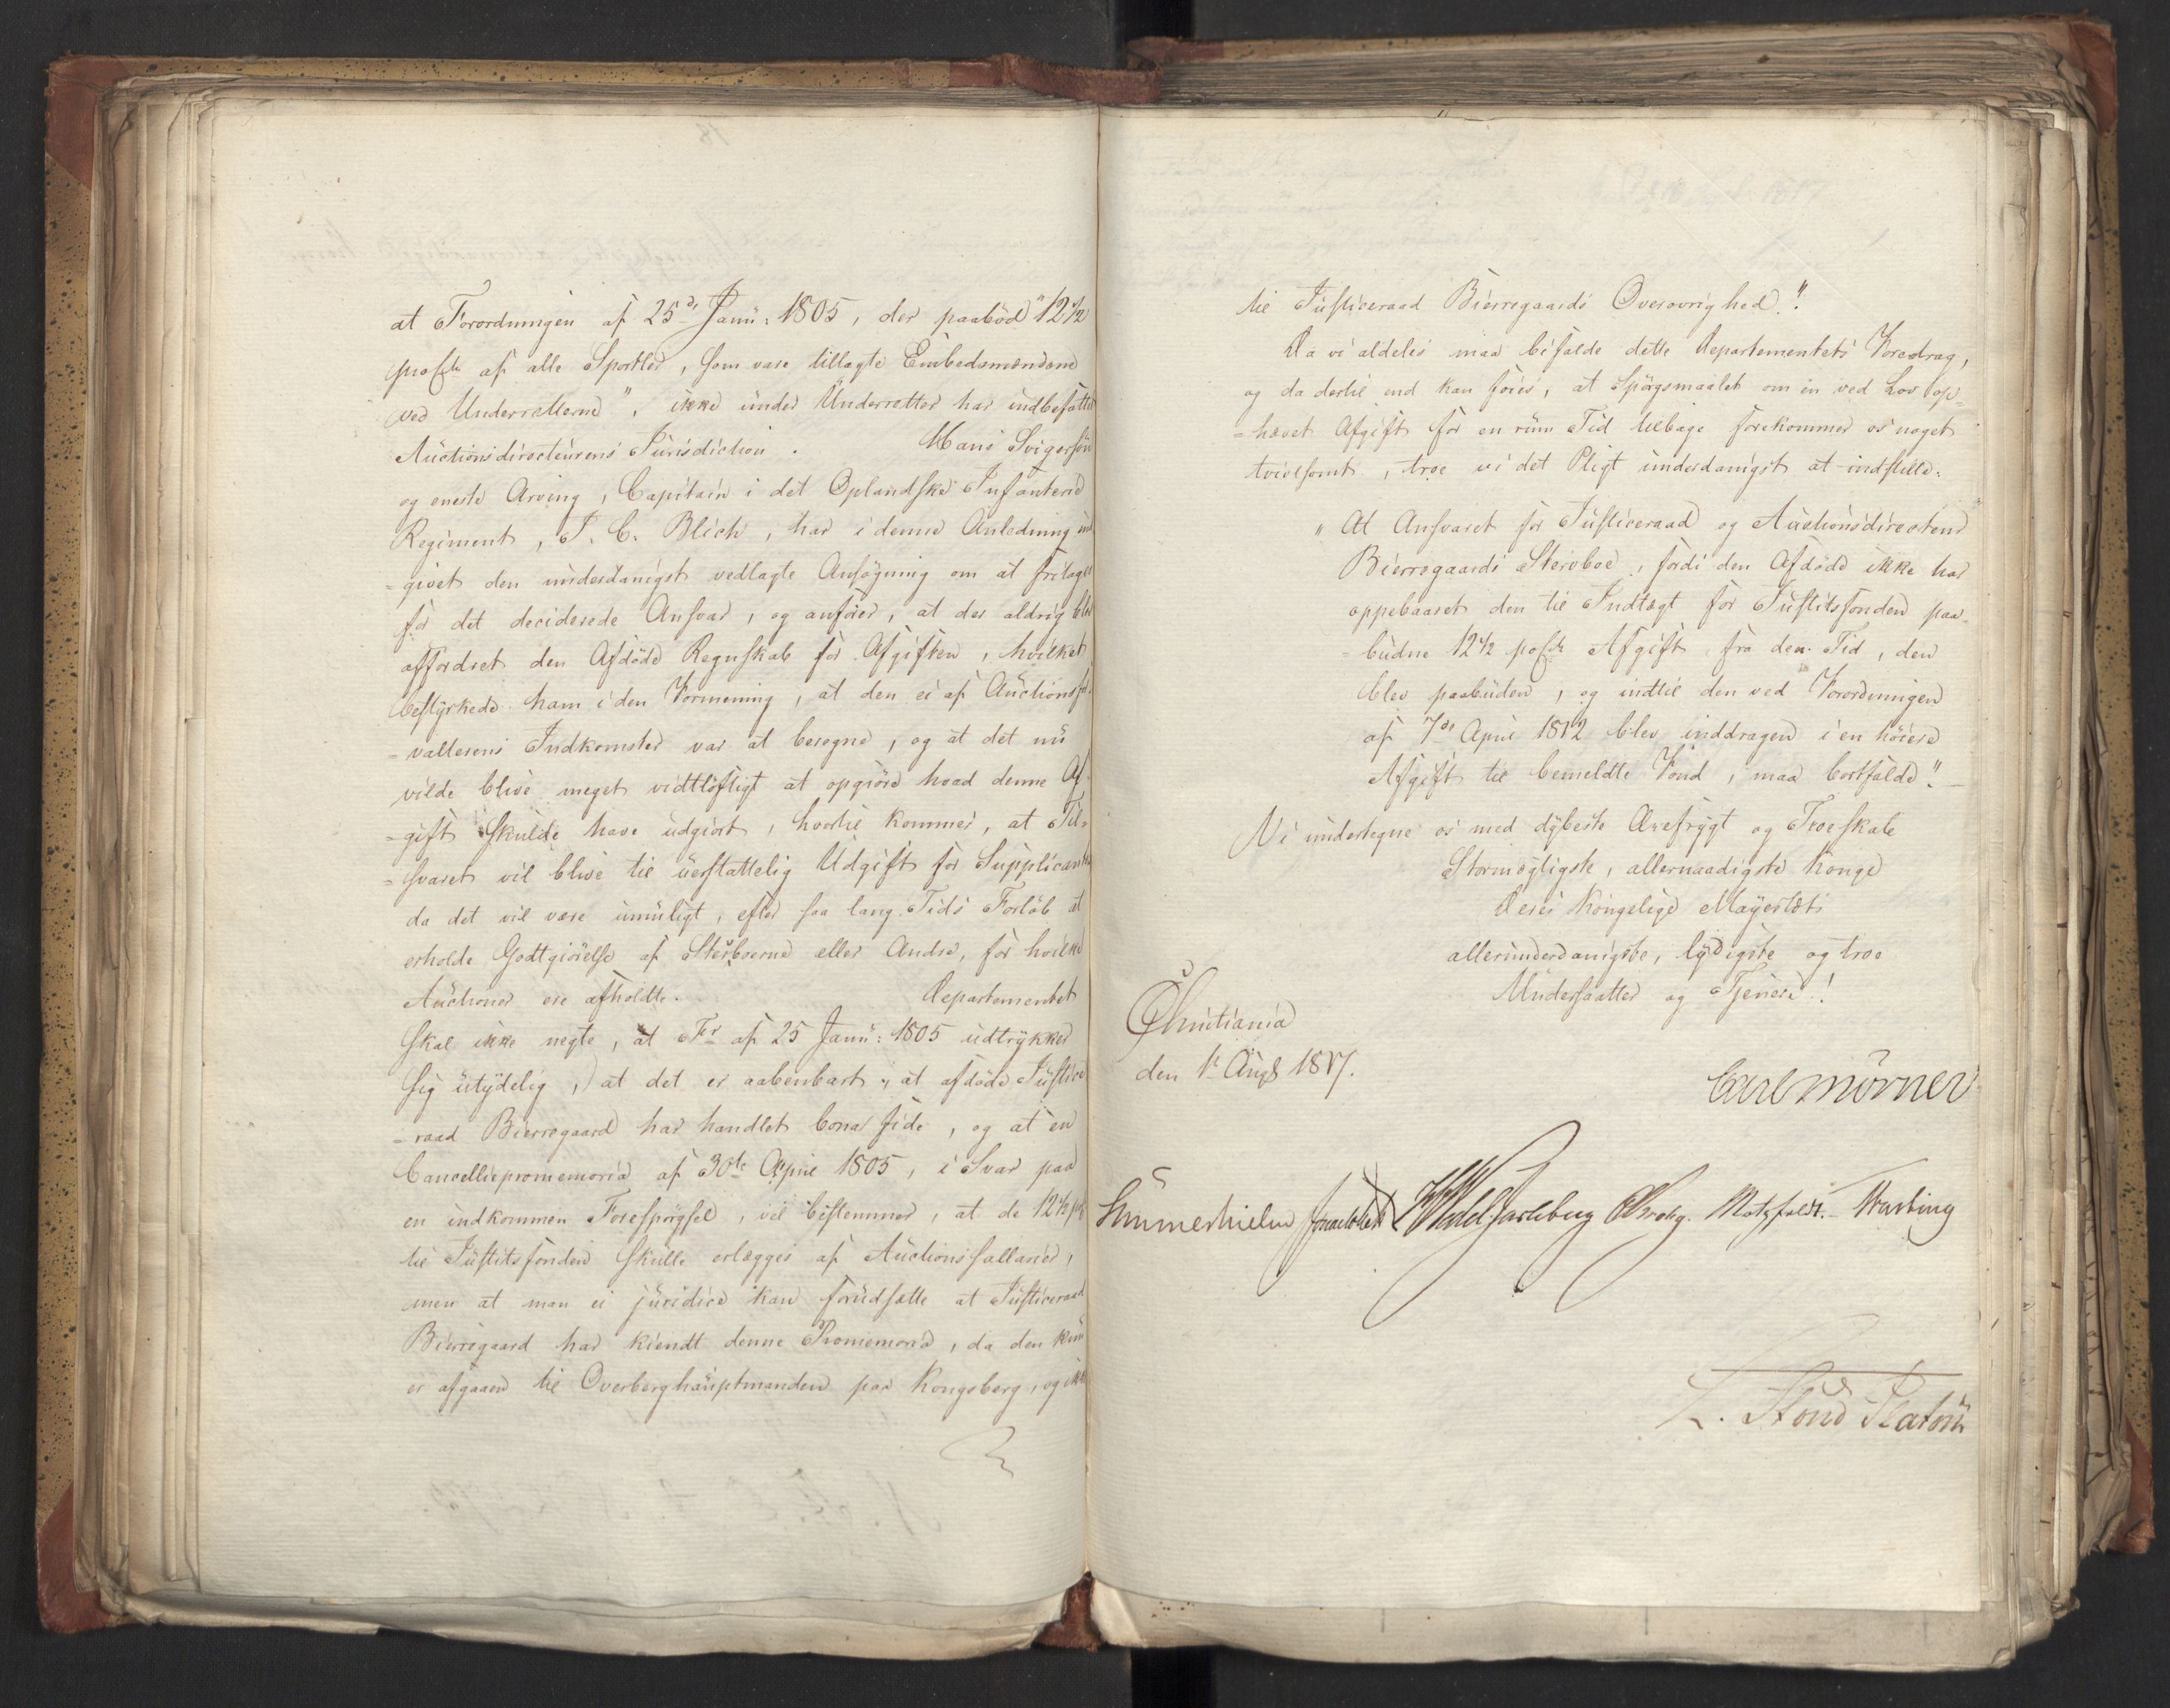 at Forordningen af 25de Janu: 1805, der paabød "12½
proCto af alle Sportler, som vare tillagte Embedsmændene
ved Underretterne", ikke under Underretter har indbefattet
Auctionsdirecteurens Jurisdiction. Hans Svigersøn
og eneste Arving, Capitain i det Oplandske Infanterie
Regiment, J. C. Blich, har i denne Anledning ind
=givet den underdanigst vedlagte Ansøgning om at fritages
for det deciderede Ansvar, og anfører, at der aldrig blev
affordret den Afdøde Regnskab for Afgiften, hvilket
bestyrkede ham i den Formening, at den ei af Auctionsfor
=valterens Indkomster var at beregne, og at det nu
vilde blive meget vidtløftigt at opgiøre hvad denne Af
=gift skulde have udgiort, hvortil kommer, at Til=
=svaret vil blive til uerstattelig Udgift for Supplicanten
da det vil være umuligt, efter saa lang Tids Forløb at
erholde Godtgiørelse af Sterboerne eller Andre, for hvilke
Auctioner ere afholdte. Departementet
skal ikke negte, at Fr af 25 Janu: 1805 udtrykker
sig utydelig, at det er aabenbart, at afdøde Justice
=raad Bierregaard har handlet bona fide, og at en
Cancelliepromemoria af 30te April 1805, i Svar paa
en indkommen Forespørgsel, vel bestemmer, at de 12½ pCt
til Justitsfonden skulle erlægges af Auctionssallarier,
men at man ei juridice kan forudsætte at Justiceraad
Bierregaard har kiendt denne Promemoria, da den kun
er afgaaen til Overberghauptmanden paa Kongsberg, og ikke
til Justiceraad Bierregaards Overøvrighed."
Da vi aldeles maa bifalde dette Departementets Foredrag,
og da dertil end kan føies, at Spørgsmaalet om en ved Lov op=
=hævet Afgift for en rum Tid tilbage forekommer os noget
tvivlsomt, troe vi det Pligt underdanigst at indstille:
"At Ansvaret for Justiceraad og Auctionsdirecteur
Bierregaards Stervboe, fordi den Afdøde ikke har
oppebaaret den til Indtægt for Justitsfonden paa=
=budne 12½ proCto Afgift fra den Tid, den
blev paabuden, og indtil den ved Forordningen
af 7de April 1812 blev inddragen i en høiere
Afgift til bemeldte Fond, maa bortfalde". —
Vi undertegne os med dybeste Ærefrygt og Troeskab
Stormægtigste, allernaadigste Konge
Deres Kongelige Mayestæts
allerunderdanigste, lydigste og troe
Undersaatter og Tjenere!
Christiania
den 1te Augs 1817.
Carl Mörner
Sommerhielm Jonas Collett H Wedel Jarlsberg CKrohg. Motzfeldt. —